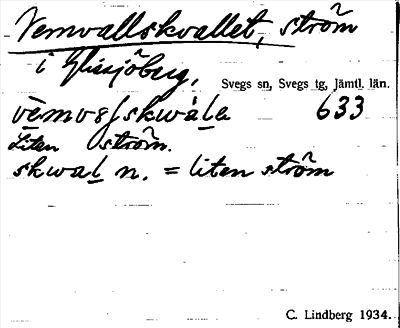 Vemvallskvallet, ström
i Glissjöberg,
Svegs sn, Svegs tg, Jämtl. län.
633
Liten ström.
skwal n. = liten ström
C. Lindberg 1934.